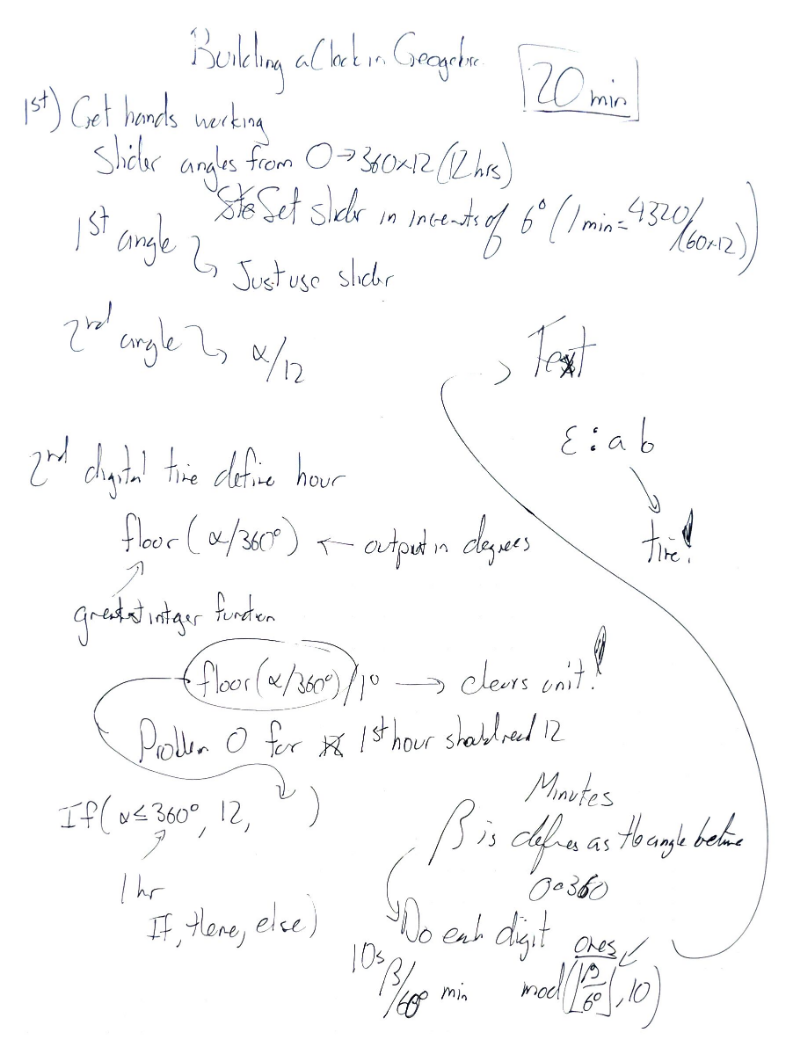 Building a Clock in Geogebra
20 min
1st) Get hands working
Slider angles from 0→360×12 (12 hrs)
Set slider in incements of 6° (1 min = 4320/(60×12))
1st angle ↳ Just use slider
2nd angle ↳ α/12
→ Text
ε:ab
time!
2nd digital time define hour
floor(α/360°) ← output in degrees
greatest integer function
floor(α/360°)/1° → clears unit!
Problem 0 for 1st hour should read 12
If(α≤360°, 12, )
1 hr
If, then, else)
Minutes
β is defines as the angle between
0 360
Do each digit
10s β/60° min
ones mod(⌊β/6°⌋, 10)